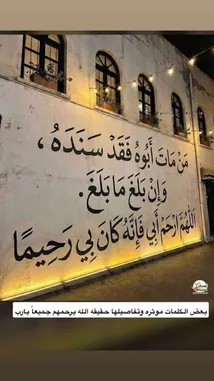 مَنْ مَاتَ أَبُوهُ فَقَدْ سَنَدَهُ ،
وَإِنْ بَلَغَ مَا بَلَغَ.
اللَّهُمَّ ارْحَمْ أَبِي فَإِنَّهُ كَانَ بِي رَحِيمًا
بعض الكلمات موثره وتفاصيلها حقيقه الله يرحمهم جميعاً يارب